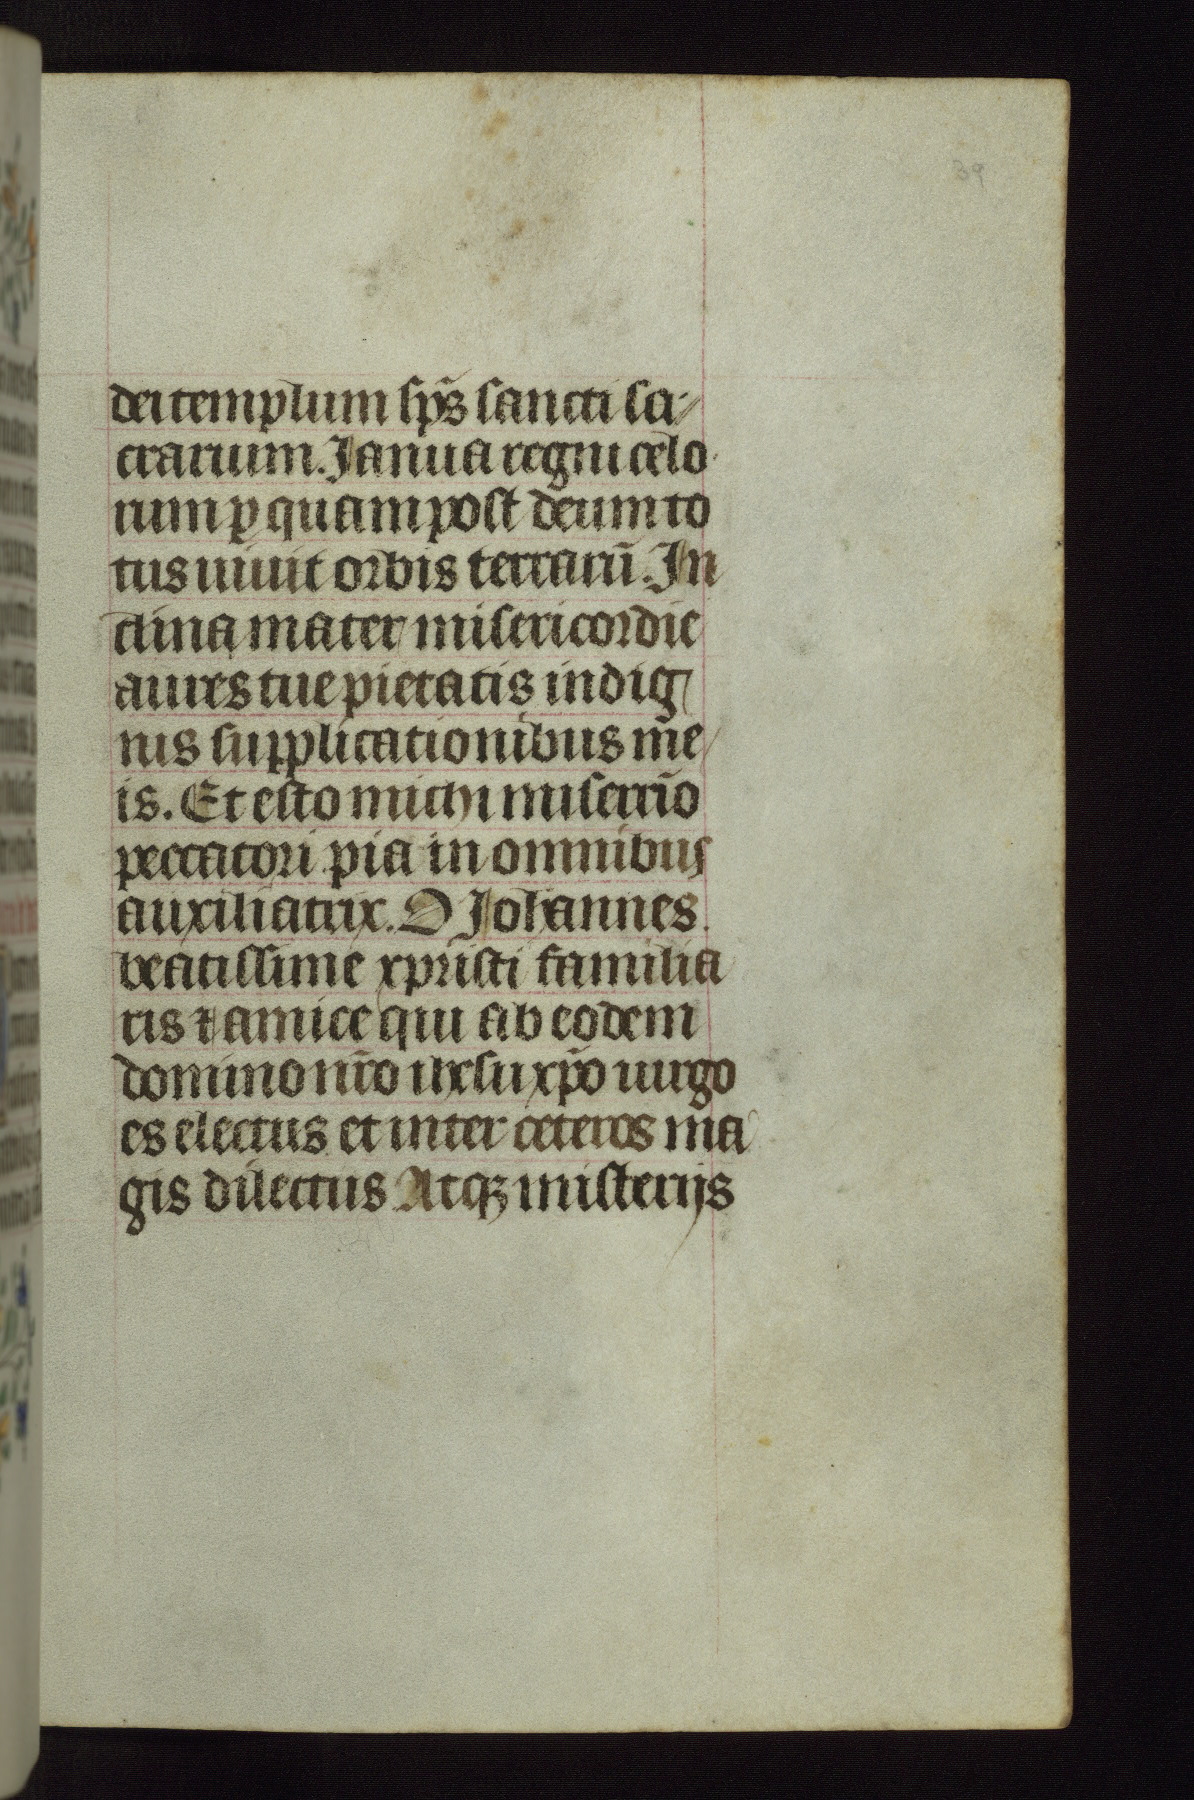 39
dei templum sp̄s sancti sa⸗
crarium. Janua regni celo
rum ꝑ quam post deum to
tus uiuit orbis terrarū. In
clina mater misericordie
aures tue pietatis indig
nis supplicationibus me
is. Et esto michi miserrīo
peccatori pia in omnibus
auxiliatrix. O Johannes
beatissime xpristi familia
ris ⁊ amice qui ab eodem
domino nr̄o ihesu xp̄o uirgo
es electus et inter ceteros ma
gis dilectus Atqꝫ misterijs